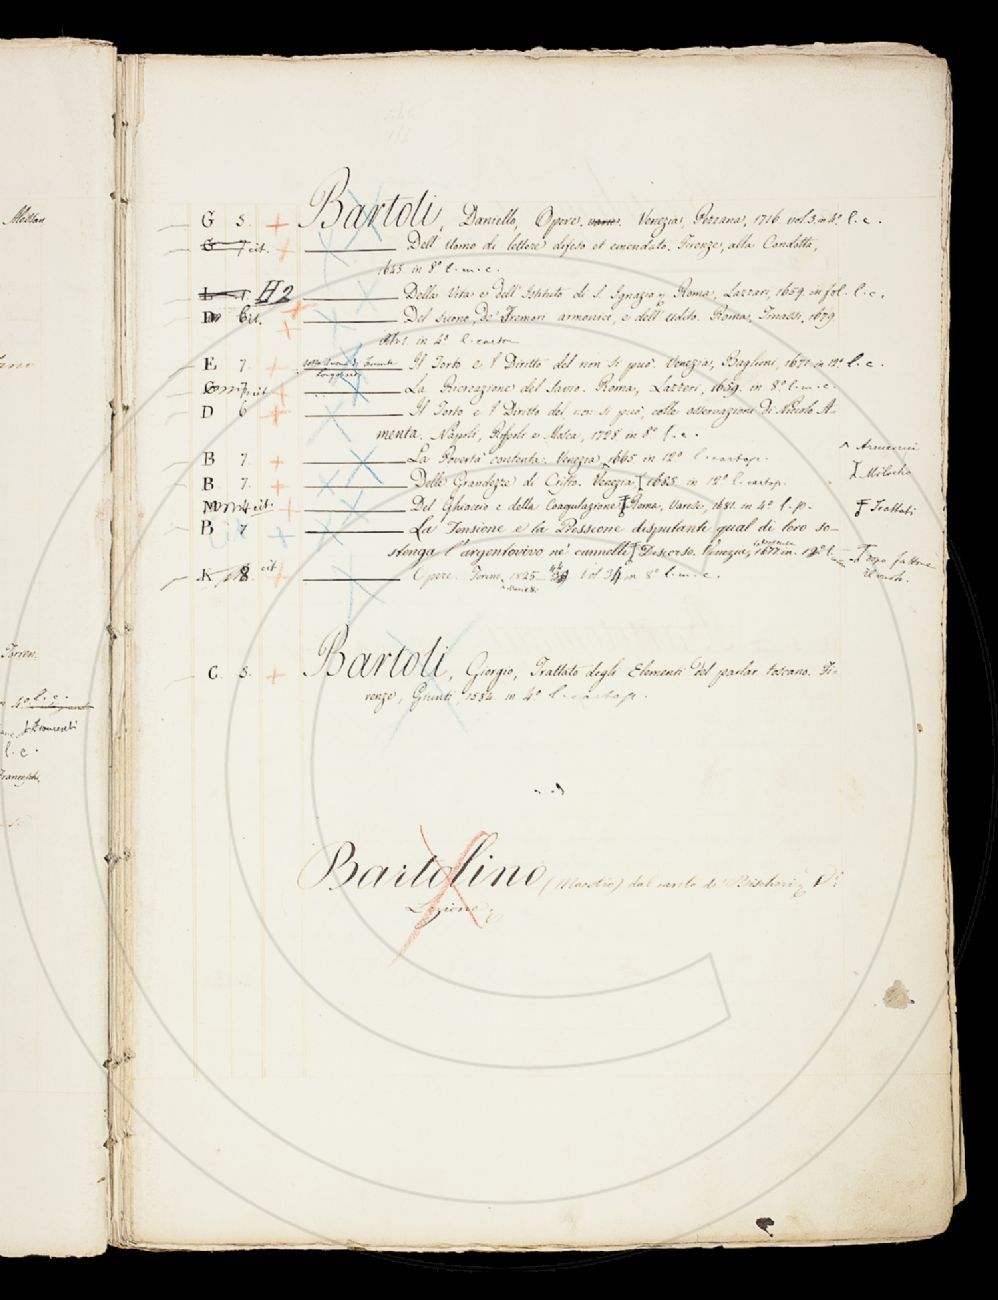 G 3. Bartoli, Daniello, Opere varie. Venezia, Pezzana, 1716. vol. 3. in 4.º l. c.
G 7 cit. Dell'Uomo di lettere difeso et emendato. Firenze, alla Condotta,
1645 in 8º l. m. c.
H2 Della Vita e dell'Istituto di S. Ignazio Roma, Lazzari, 1659. in fol. l. c.
D 6 cit. Del suono, de' Tremori armonici, e dell'udito. Roma, 1679
in 4º l. carton
E 7. Il Torto e l'Diritto del non si può. Venezia, Baglioni, 1671. in 12º l. c.
cit. La Ricreazione del Savio. Roma, Lazzeri, 1659. in 8º l. m. c.
D 6 Il Torto e l'Diritto del non si può, colle osservazioni di Nicolo A-
menta. Napoli, e Mosca, 1728. in 8º l. c.
B 7. La Povertà contenta. Venezia, 1665 in 12º l. cartap.
Armanni
B 7. Delle Grandezze di Cristo. Venezia, in 12º l. cartap.
Milocho
cit. Del Ghiaccio e della Coagulazione Roma, Varese, 1681. in 4º l. p.
Trattati
B 7 La Tensione e la Pressione disputanti qual di loro so-
stenga l'argentovivo ne' cannelli Discorso. Venezia, 1677 in 12º l.
K 8 cit Opere. Torino, 1825 Vol. in 8º l. m. c.
C. 3. Bartoli, Giorgio, Trattato degli Elementi del parlar toscano. Fi-
renze, Giunti, 1584. in 4º l. cartap.
Bartolino (Maestro) dal canto de' Bischeri
Lezione